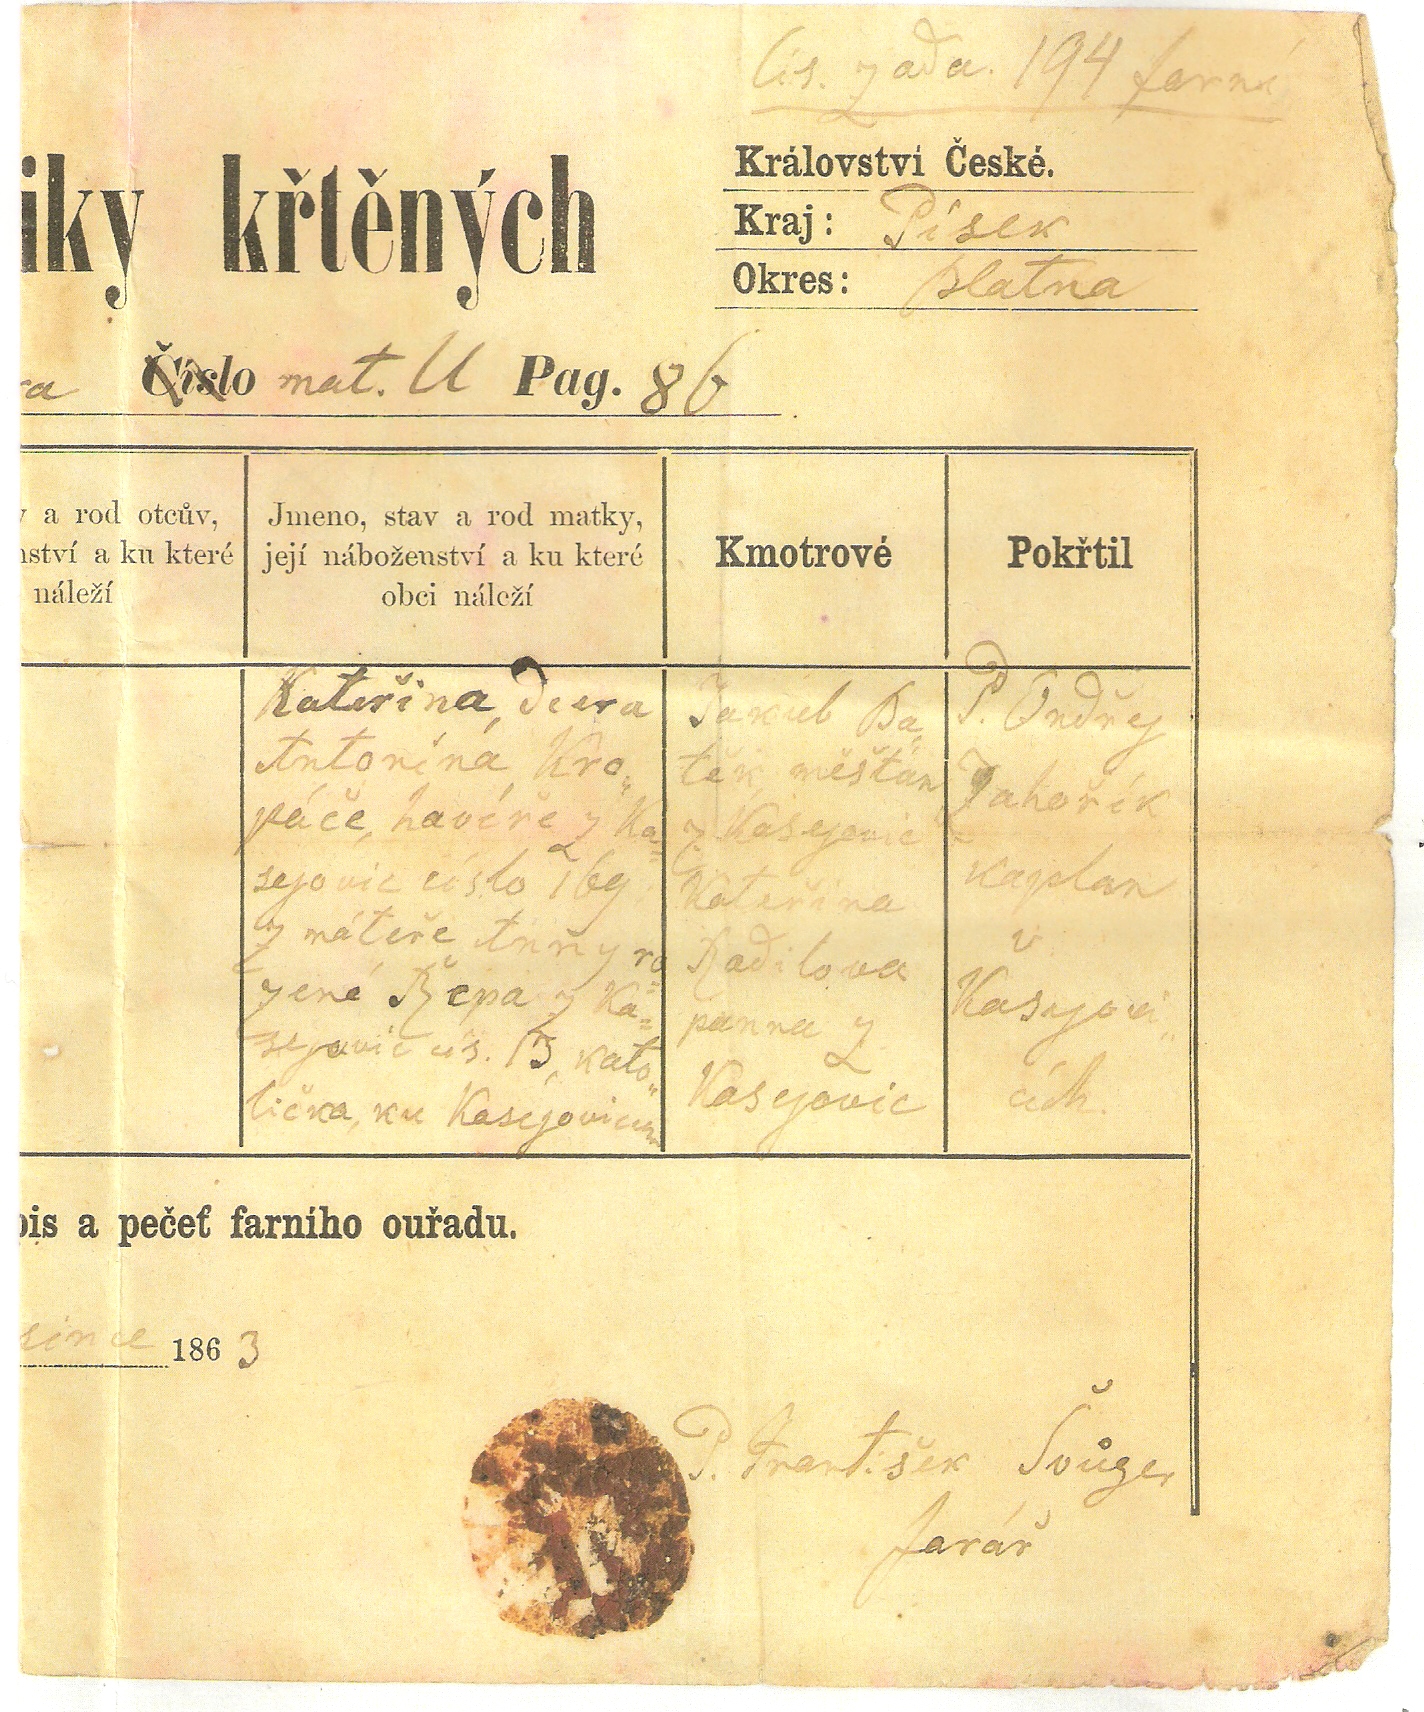 čís. zada. 194 farní
Království České.
Kraj: Písek
Okres: Blatna
iky křtěných
ra Číslo mat. U Pag. 86
a rod otcův,
ství a ku které
náleží
Jmeno, stav a rod matky,
její náboženství a ku které
obci náleží
Kmotrové
Pokřtil
Kateřina, dcera
Antonína Kro„
páče, havíře z Ka=
sejovic číslo 169
z máteře Anny ro=
zené Řepa z Ka=
sejovic čís. 13, kato„
lička, ku Kasejovicum
Jakub Ba„
těk, měšťan
z Kasejovic
Kateřina
Radilova
panna z
Kasejovic
P. Ondřej
Zahořík
kaplan
v
Kasejovi„
cích.
pis a pečeť farního ouřadu.
since 1863
P. František
farář